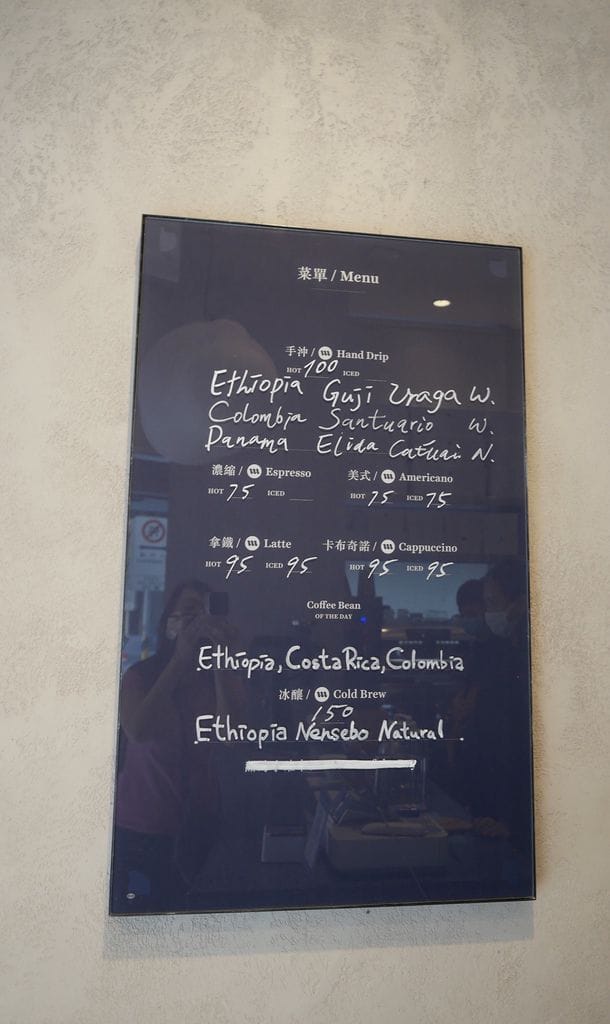 菜單 / Menu
手沖 / Hand Drip
HOT 100 ICED
Ethiopia Guji Uraga W.
Colombia Santuario W.
Panama Elida Catuai N.
濃縮 / Espresso 美式 / Americano
HOT 75 ICED HOT 75 ICED 75
拿鐵 / Latte 卡布奇諾 / Cappuccino
HOT 95 ICED 95 HOT 95 ICED 95
Coffee Bean
OF THE DAY
Ethiopia, Costa Rica, Colombia
冰釀 / Cold Brew
150
Ethiopia Nensebo Natural.